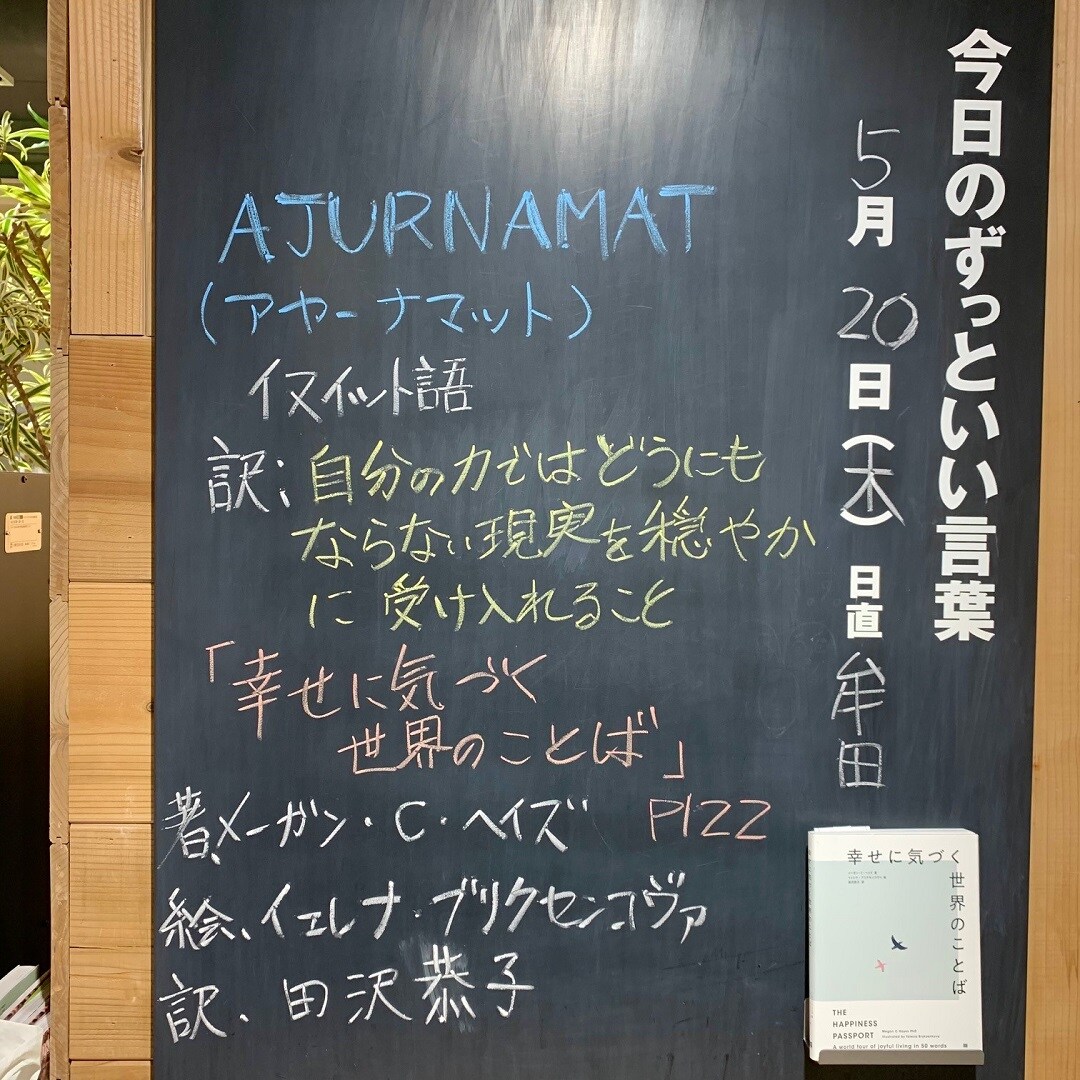 今日のずっといい言葉
5月20日(木) 日直 牟田
AJURNAMAT
(アヤーナマット)
イヌイット語
訳;自分の力ではどうにも
ならない現実を穏やか
に受け入れること
「幸せに気づく
世界のことば」
著、メーガン・C・ヘイズ P122
絵、イェレナ・ブリクセンコヴァ
訳、田沢恭子
幸せに気づく
世界のことば
THE
HAPPINESS
PASSPORT
A world tour of joyful living in 50 words